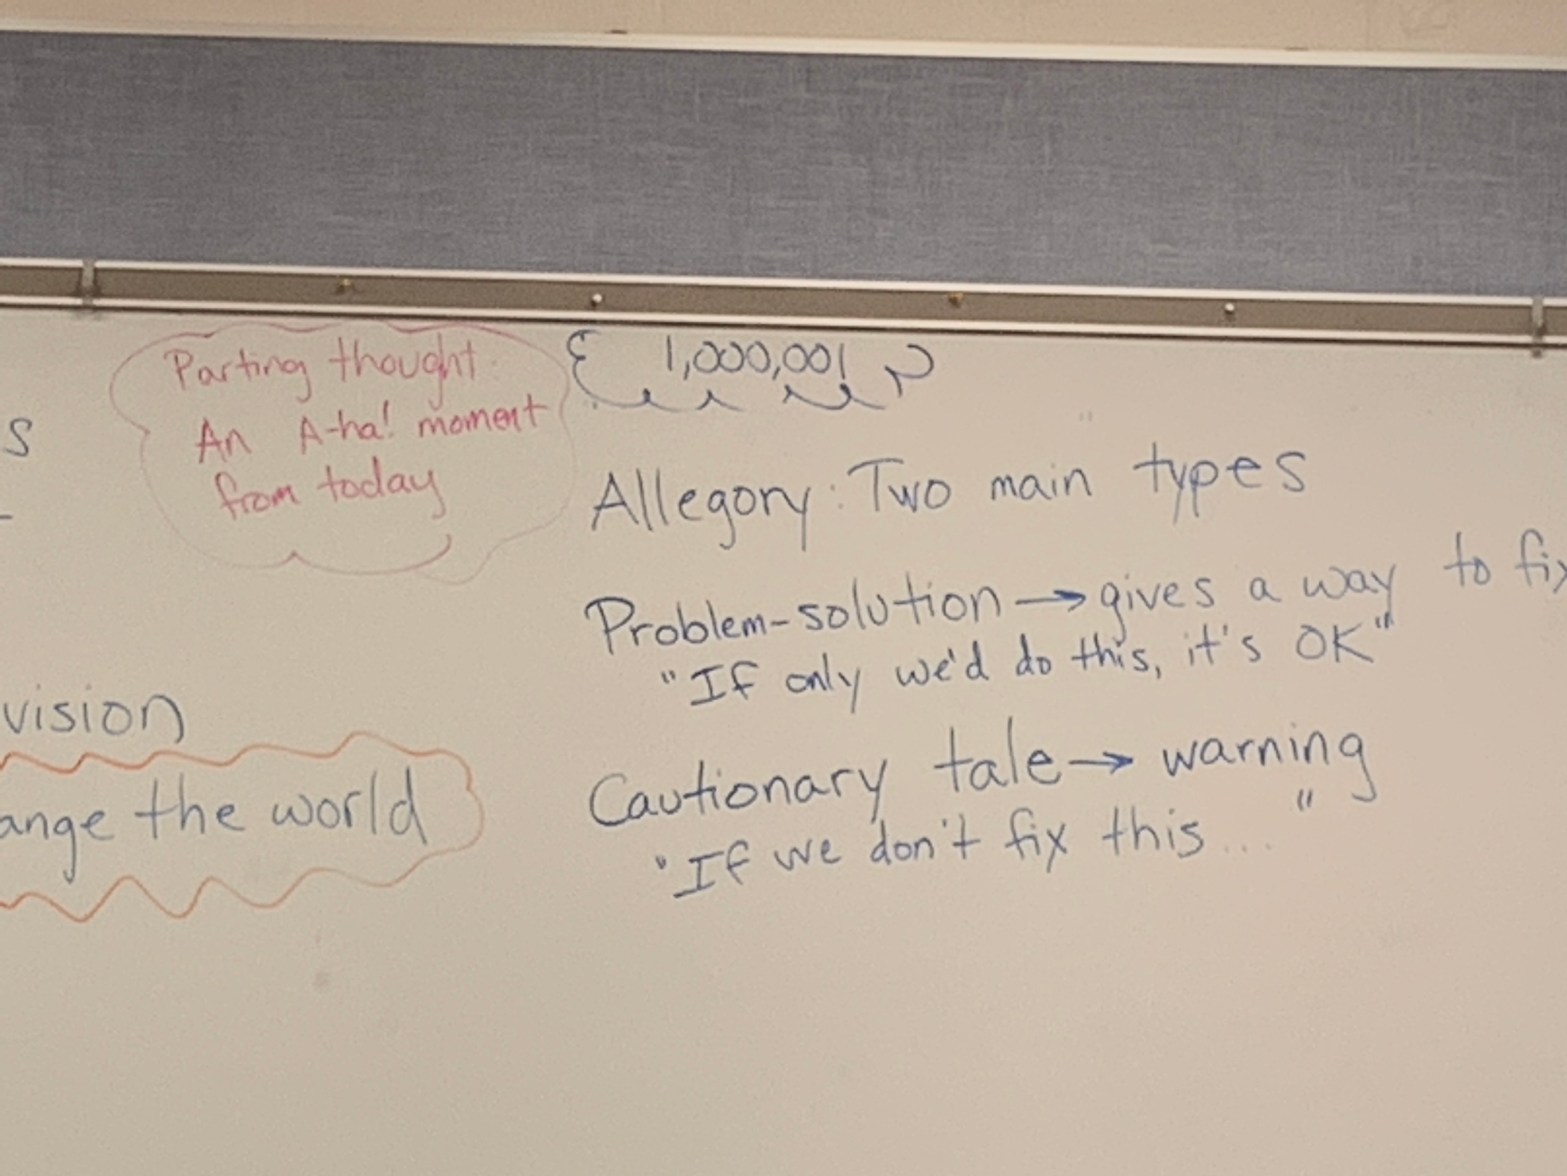 Parting thought:
An A-ha! moment
from today
s
vision
ange the world
1,000,001
Allegory: Two main types
Problem-solution → gives a way to fix
"If only we'd do this, it's OK"
Cautionary tale → warning
"If we don't fix this... "